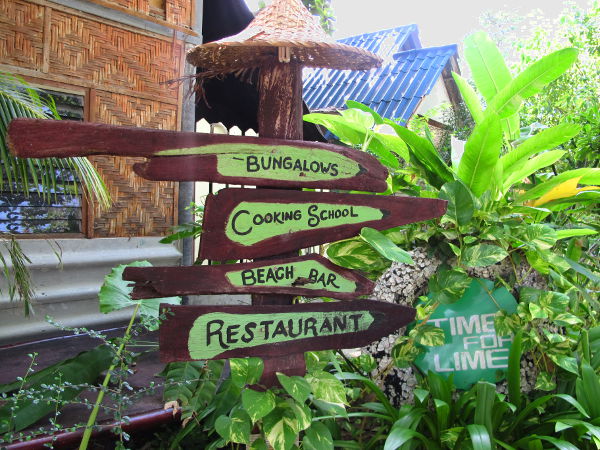 BUNGALOWS
COOKING SCHOOL
BEACH BAR
RESTAURANT
TIME
FOR
LIME